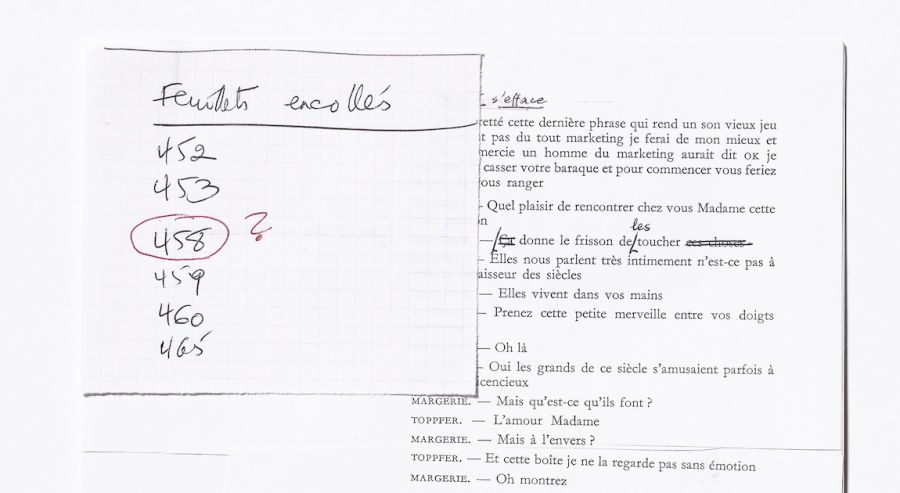 Feuillets encollés
452
453
458 ?
459
460
465
s'efface
retté cette dernière phrase qui rend un son vieux jeu
it pas du tout marketing je ferai de mon mieux et
mercie un homme du marketing aurait dit OK je
casser votre baraque et pour commencer vous feriez
ous ranger
- Quel plaisir de rencontrer chez vous Madame cette
n
les
— Ça donne le frisson de toucher ces choses
- Elles nous parlent très intimement n'est-ce pas à
aisseur des siècles
— Elles vivent dans vos mains
- Prenez cette petite merveille entre vos doigts
— Oh là
- Oui les grands de ce siècle s'amusaient parfois à
icencieux
MARGERIE. — Mais qu'est-ce qu'ils font ?
TOPPFER. — L'amour Madame
MARGERIE. — Mais à l'envers ?
TOPPFER. — Et cette boîte je ne la regarde pas sans émotion
MARGERIE. — Oh montrez